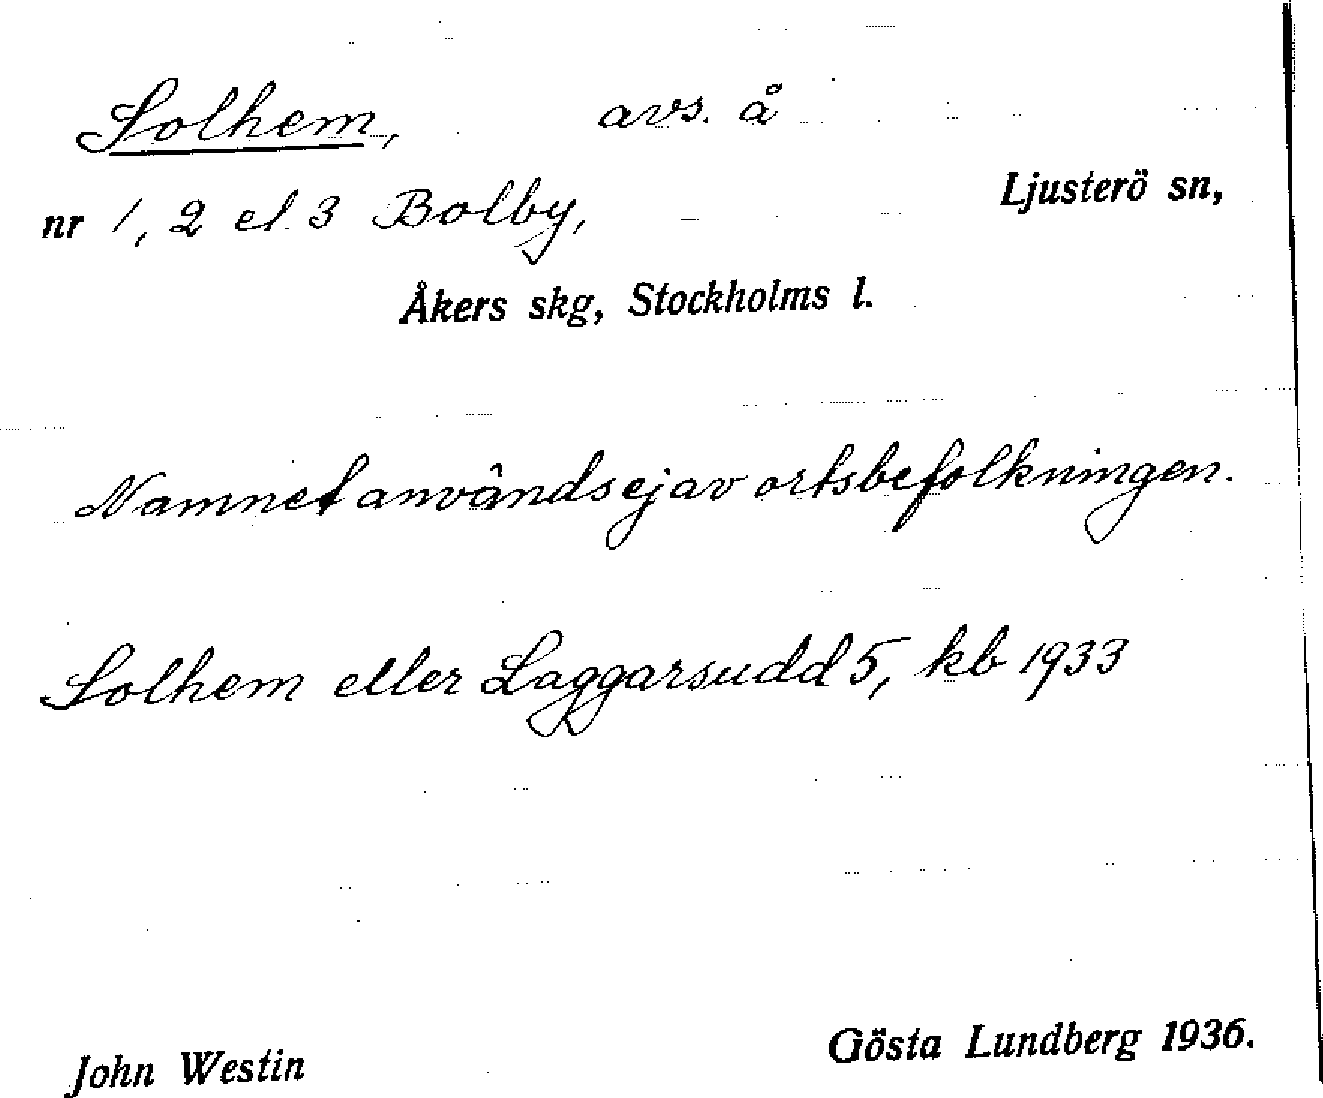 Solhem, avs. å
Ljusterö sn,
nr 1, 2 el. 3 Bolby,
Åkers skg, Stockholms l.
Namnet användsejav ortsbefolkningen.
Solhem eller Laggarsudd 5, kb 1933
John Westin
Gösta Lundberg 1936.